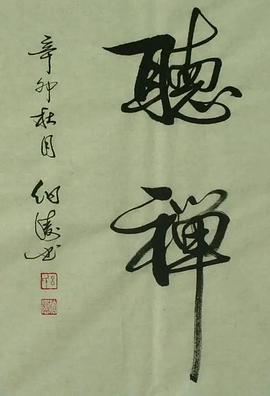 聽禪
辛卯秋月